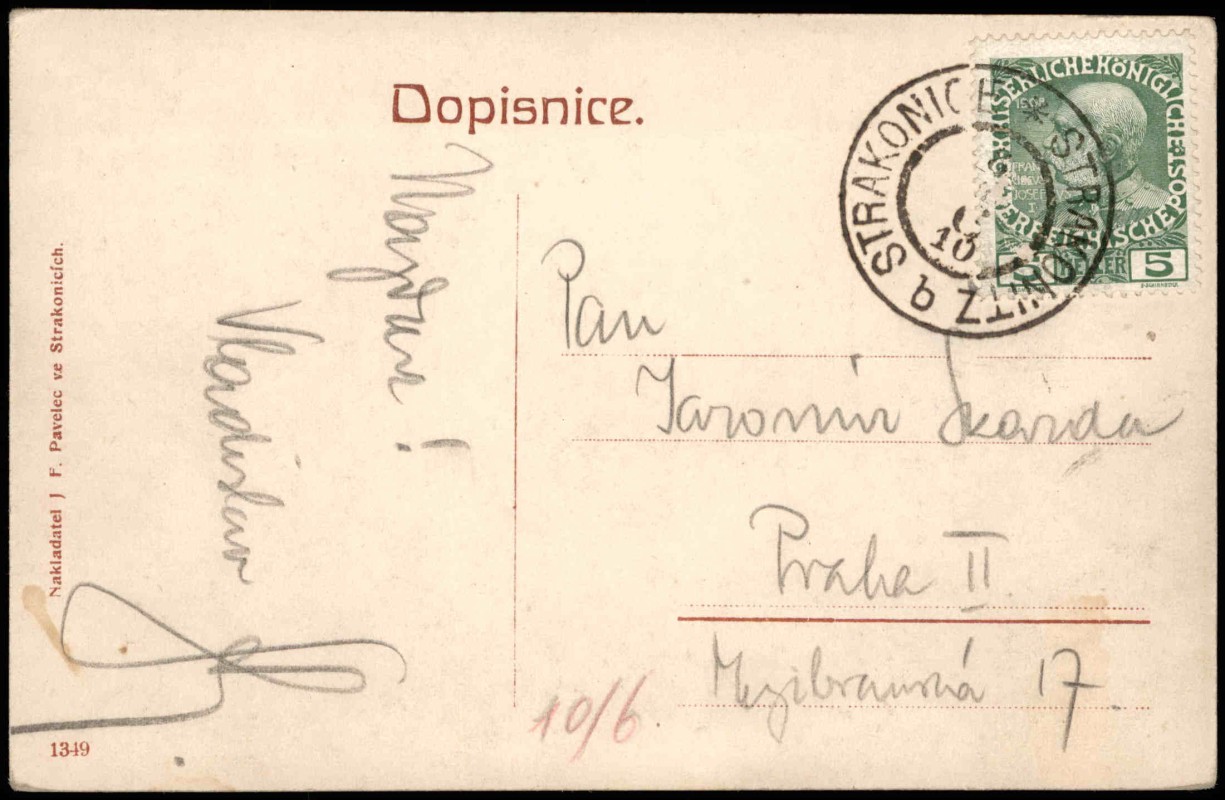 Dopisnice.
Nazdar!
Vladislav
Nakladatel J F. Pavelec ve Strakonicích.
1349
10/6.
STRAKONICE * STRAKONITZ q
10
KAISERLICHE KÖNIGLICHE ÖSTERREICHISCHE POST
1908
FRANZ
JOSEF
5 HELLER 5
Pan
Jaromír Skarda
Praha II
Mezibranská 17.